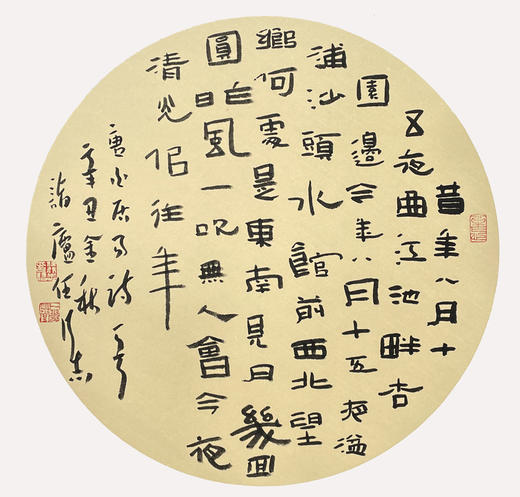 昔年八月十
五夜曲江池畔杏
園邊今年八月十五夜湓
浦沙頭水館前西北望
鄉何處是東南見月幾回
圓昨風一吹無人會今夜
清光佀往年
唐白居易詩一首
辛丑金秋
廬任